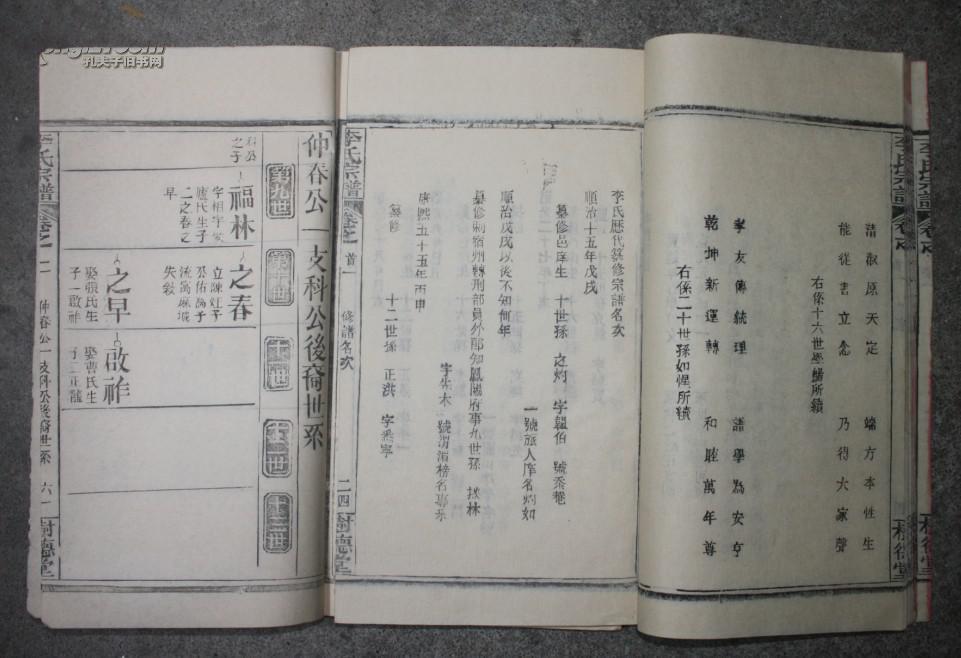 孔夫子旧书网
李氏宗譜
清淑原天定　端方本性生
能從書立念　乃得大家聲
右係十六世學疇所續
孝友傳統理　譜學為安亨
乾坤新運轉　和睦萬年尊
右係二十世孫如惺所續
李氏歷代纂修宗譜名次
順治十五年戊戌
纂修邑庠生　十世孫　之灼　字韞伯　號柔菴
一號旅人庠名灼如
順治戊戌以後不知何年
纂修嗣宿州轉刑部員外郎知鳳陽府事九世孫　拔林
康熙五十五年丙申
纂修　十二世孫　正洪　字悉寧
李氏宗譜　卷之　首一　修譜名次　二四　樹德堂
仲春公一支科公後裔世系
第九世
第十世
十一世
十二世
十三世
科公之子
福林
盧氏生子
二之春之
早
之春
失敘
之早
娶張氏生
子一啟祚
啟祚
娶曹氏生
李氏宗譜　卷之二　仲春公一支科公後裔世系　六一　樹德堂